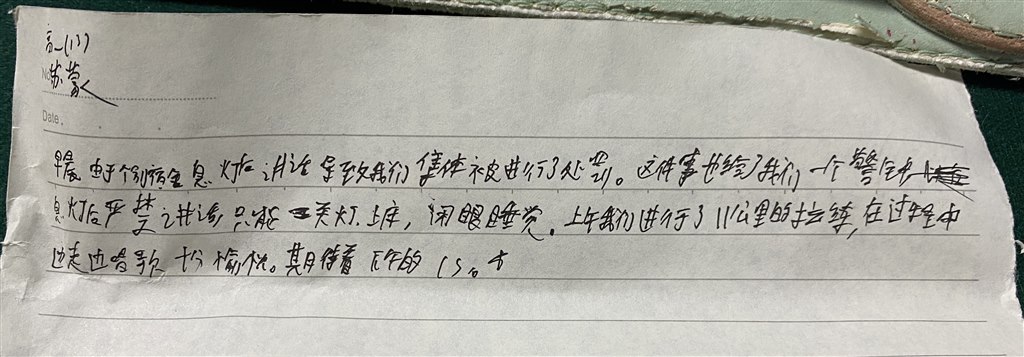 高一(13)
No.
苏蒙
Date.
早晨由于个别宿舍息灯后讲话导致我们集体被进行了处罚。这件事也给了我们一个警告
息灯后严禁讲话只能关灯上床,闭眼睡觉。上午我们进行了11公里的拉练,在过程中
边走边唱歌十分愉快。期待着下午的